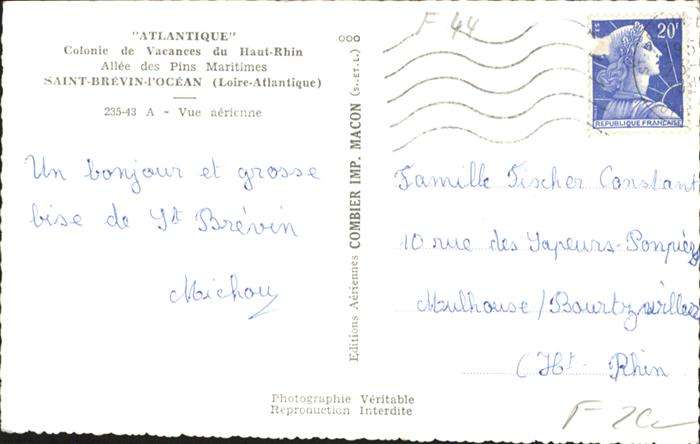 "ATLANTIQUE"
Colonie de Vacances du Haut-Rhin
Allée des Pins Maritimes
SAINT-BRÉVIN-l'OCÉAN (Loire-Atlantique)
235-43 A - Vue aérienne
Un bonjour et grosse
bise de St Brévin
Michou
Editions Aériennes COMBIER IMP. MACON (S.-ET-L.)
F 44
20F
REPUBLIQUE FRANÇAISE
Famille Fischer Constant
10 rue des Sapeurs-Pompiers
Mulhouse/Bourtzwiller
(Ht-Rhin
Photographie Véritable
Reproduction Interdite